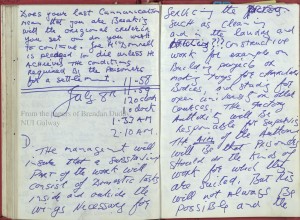 Does your last Communication
mean that you are Breaking
will the original ordering
you set on or you want
to continue. For Mr
is accused to die unless he
Achieves the conditions
required by the Prisoners
for a settlement.
11-58
July 8th 11-59
12 o clock
1 o clock
From the papers of Brendan Duddy
NUI Galway
1-30 AM
2-10 AM
D. The management will
insure that a substantial
Part of the work will
consist of domestic tasks
inside and outside the
wings necessary for
servicing the
such as cleaning
and in the laundry and
Construction
work, for example on
Building projects or
making Toys for charitable
Bodies, and study for
open university or other
courses. The factory
Authority will be
Responsible for supervision
The Aim of the Authorities
will be that Prisoners
should do the kinds of
work for which they
are suited. But this
will not always be
possible and the